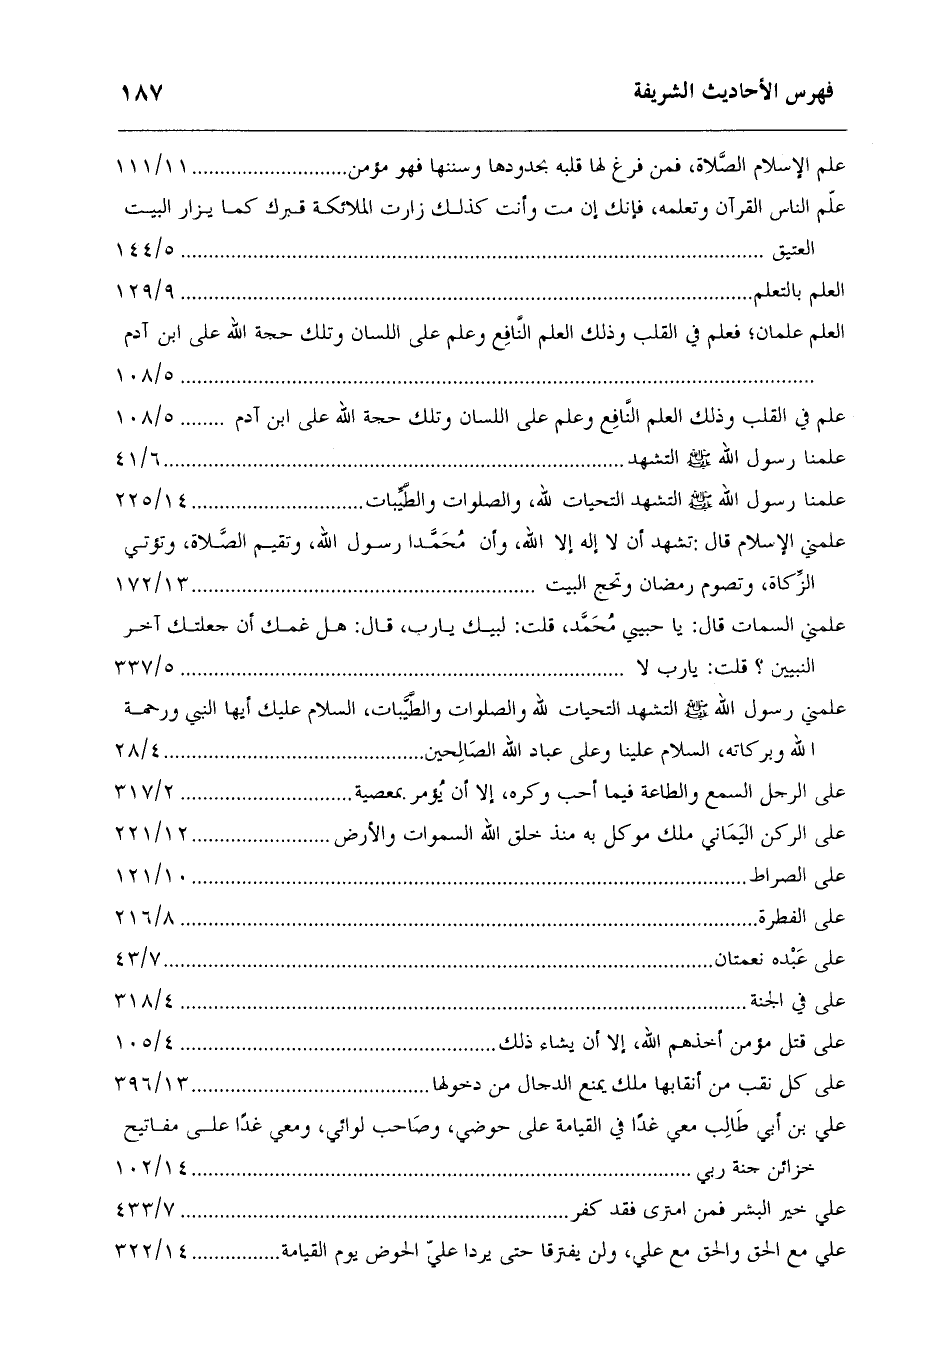 فهرس الأحاديث الشريفة ١٨٧
علم الإسلام الصَّلاة، فمن فرغ لها قلبه بحدودها وسننها فهو مؤمن............................ ١١١/١١
علّم الناس القرآن وتعلمه، فإنك إن مت وأنت كذلك زارت الملائكة قبرك كما يزار البيت
العتيق .................................................................................................. ١٤٤/٥
العلم بالتعلم................................................................................................ ١٢٩/٩
العلم علمان؛ فعلم في القلب وذلك العلم النَّافِع وعلم على اللسان وتلك حجة الله على ابن آدم
.......................................................................................................... ١٠٨/٥
علم في القلب وذلك العلم النَّافِع وعلم على اللسان وتلك حجة الله على ابن آدم ........ ١٠٨/٥
علمنا رسول الله ﷺ التشهد............................................................................. ٤١/٦
علمنا رسول الله ﷺ التشهد التحيات لله، والصلوات والطيِّبات.............................. ٢٢٥/١٤
علمني الإسلام قال :تشهد أن لا إله إلا الله، وأن مُحَمَّدا رسول الله، وتقيم الصَّلاة، وتؤتي
الزِّكاة، وتصوم رمضان وتحج البيت .......................................................... ١٧٢/١٣
علمني السمات قال: يا حبيبي مُحَمَّد، قلت: لبيك يارب، قال: هل غمك أن جعلتك آخر
النبيين ؟ قلت: يارب لا .......................................................................... ٣٣٧/٥
علمني رسول الله ﷺ التشهد التحيات لله والصلوات والطيَّبات، السلام عليك أيها النبي ورحمة
الله وبركاته، السلام علينا وعلى عباد الله الصَالِحين............................................ ٢٨/٤
على الرجل السمع والطاعة فيما أحب وكره، إلا أن يُؤمر بمعصية............................. ٣١٧/٢
على الركن اليَمَاني ملك موكل به منذ خلق الله السموات والأرض........................ ٢٢١/١٢
على الصراط.............................................................................................. ١٢١/١٠
على الفطرة................................................................................................ ٢١٦/٨
على عَبْده نعمتان............................................................................................ ٤٣/٧
على في الجنة............................................................................................... ٣١٨/٤
على قتل مؤمن أخذهم الله، إلا أن يشاء ذلك..................................................... ١٠٥/٤
على كل نقب من أنقابها ملك يمنع الدجال من دخولها........................................ ٣٩٦/١٣
علي بن أبي طَالِب معي غدًا في القيامة على حوضي، وصَاحب لوائي، ومعي غدًا على مفاتيح
خزائن جنة ربي .................................................................................... ١٠٢/١٤
علي خير البشر فمن امترى فقد كفر................................................................. ٤٣٣/٧
علي مع الحق والحق مع علي، ولن يفترقا حتى يردا عليّ الحوض يوم القيامة............... ٣٢٢/١٤